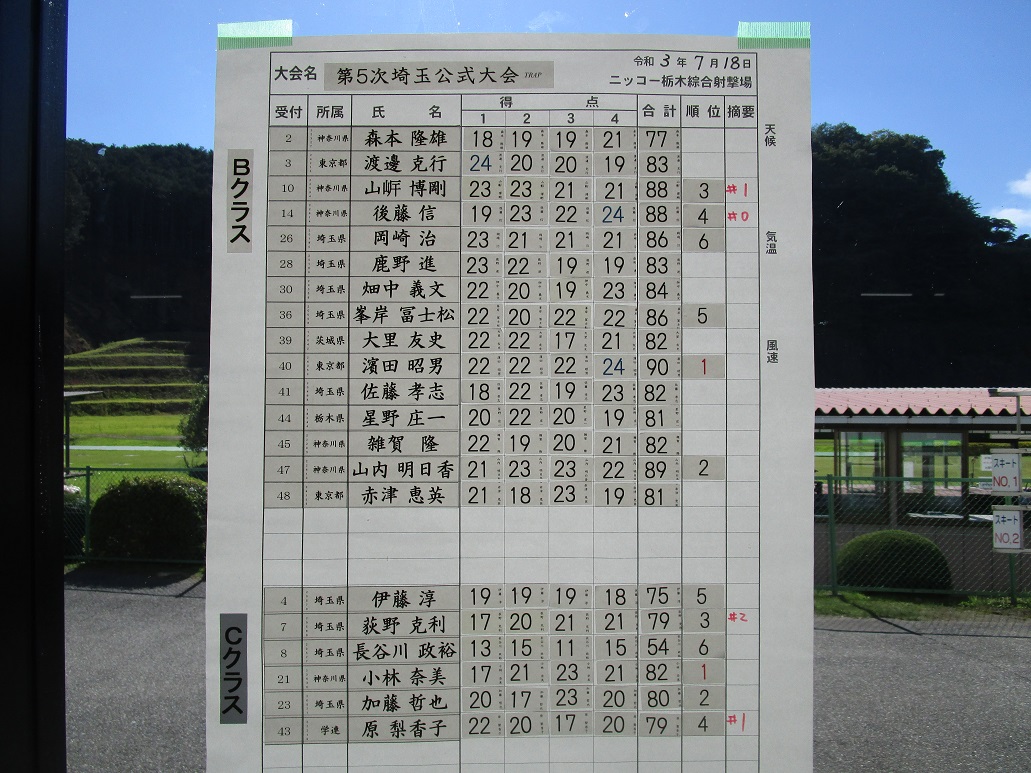 令和 3 年 7 月 18 日
大会名 第5次埼玉公式大会 TRAP ニッコー栃木綜合射撃場
受付 所属 氏 名 得 点 合計 順位 摘要
1 2 3 4
天候
気温
風速
Bクラス
2 神奈川県 森本 隆雄 18 19 19 21 77
3 東京都 渡邊 克行 24 20 20 19 83
10 神奈川県 山㟁 博剛 23 23 21 21 88 3 #1
14 神奈川県 後藤 信 19 23 22 24 88 4 #0
26 埼玉県 岡崎 治 23 21 21 21 86 6
28 埼玉県 鹿野 進 23 22 19 19 83
30 埼玉県 畑中 義文 22 20 19 23 84
36 埼玉県 峯岸 冨士松 22 20 22 22 86 5
39 茨城県 大里 友史 22 22 17 21 82
40 東京都 濱田 昭男 22 22 22 24 90 1
41 埼玉県 佐藤 孝志 18 22 19 23 82
44 栃木県 星野 庄一 20 22 20 19 81
45 神奈川県 雑賀 隆 22 19 20 21 82
47 神奈川県 山内 明日香 21 23 23 22 89 2
48 東京都 赤津 恵英 21 18 23 19 81
Cクラス
4 埼玉県 伊藤 淳 19 19 19 18 75 5
7 埼玉県 荻野 克利 17 20 21 21 79 3 #2
8 埼玉県 長谷川 政裕 13 15 11 15 54 6
21 神奈川県 小林 奈美 17 21 23 21 82 1
23 埼玉県 加藤 哲也 20 17 23 20 80 2
43 学連 原 梨香子 22 20 17 20 79 4 #1
スキート
NO,1
スキート
NO,2